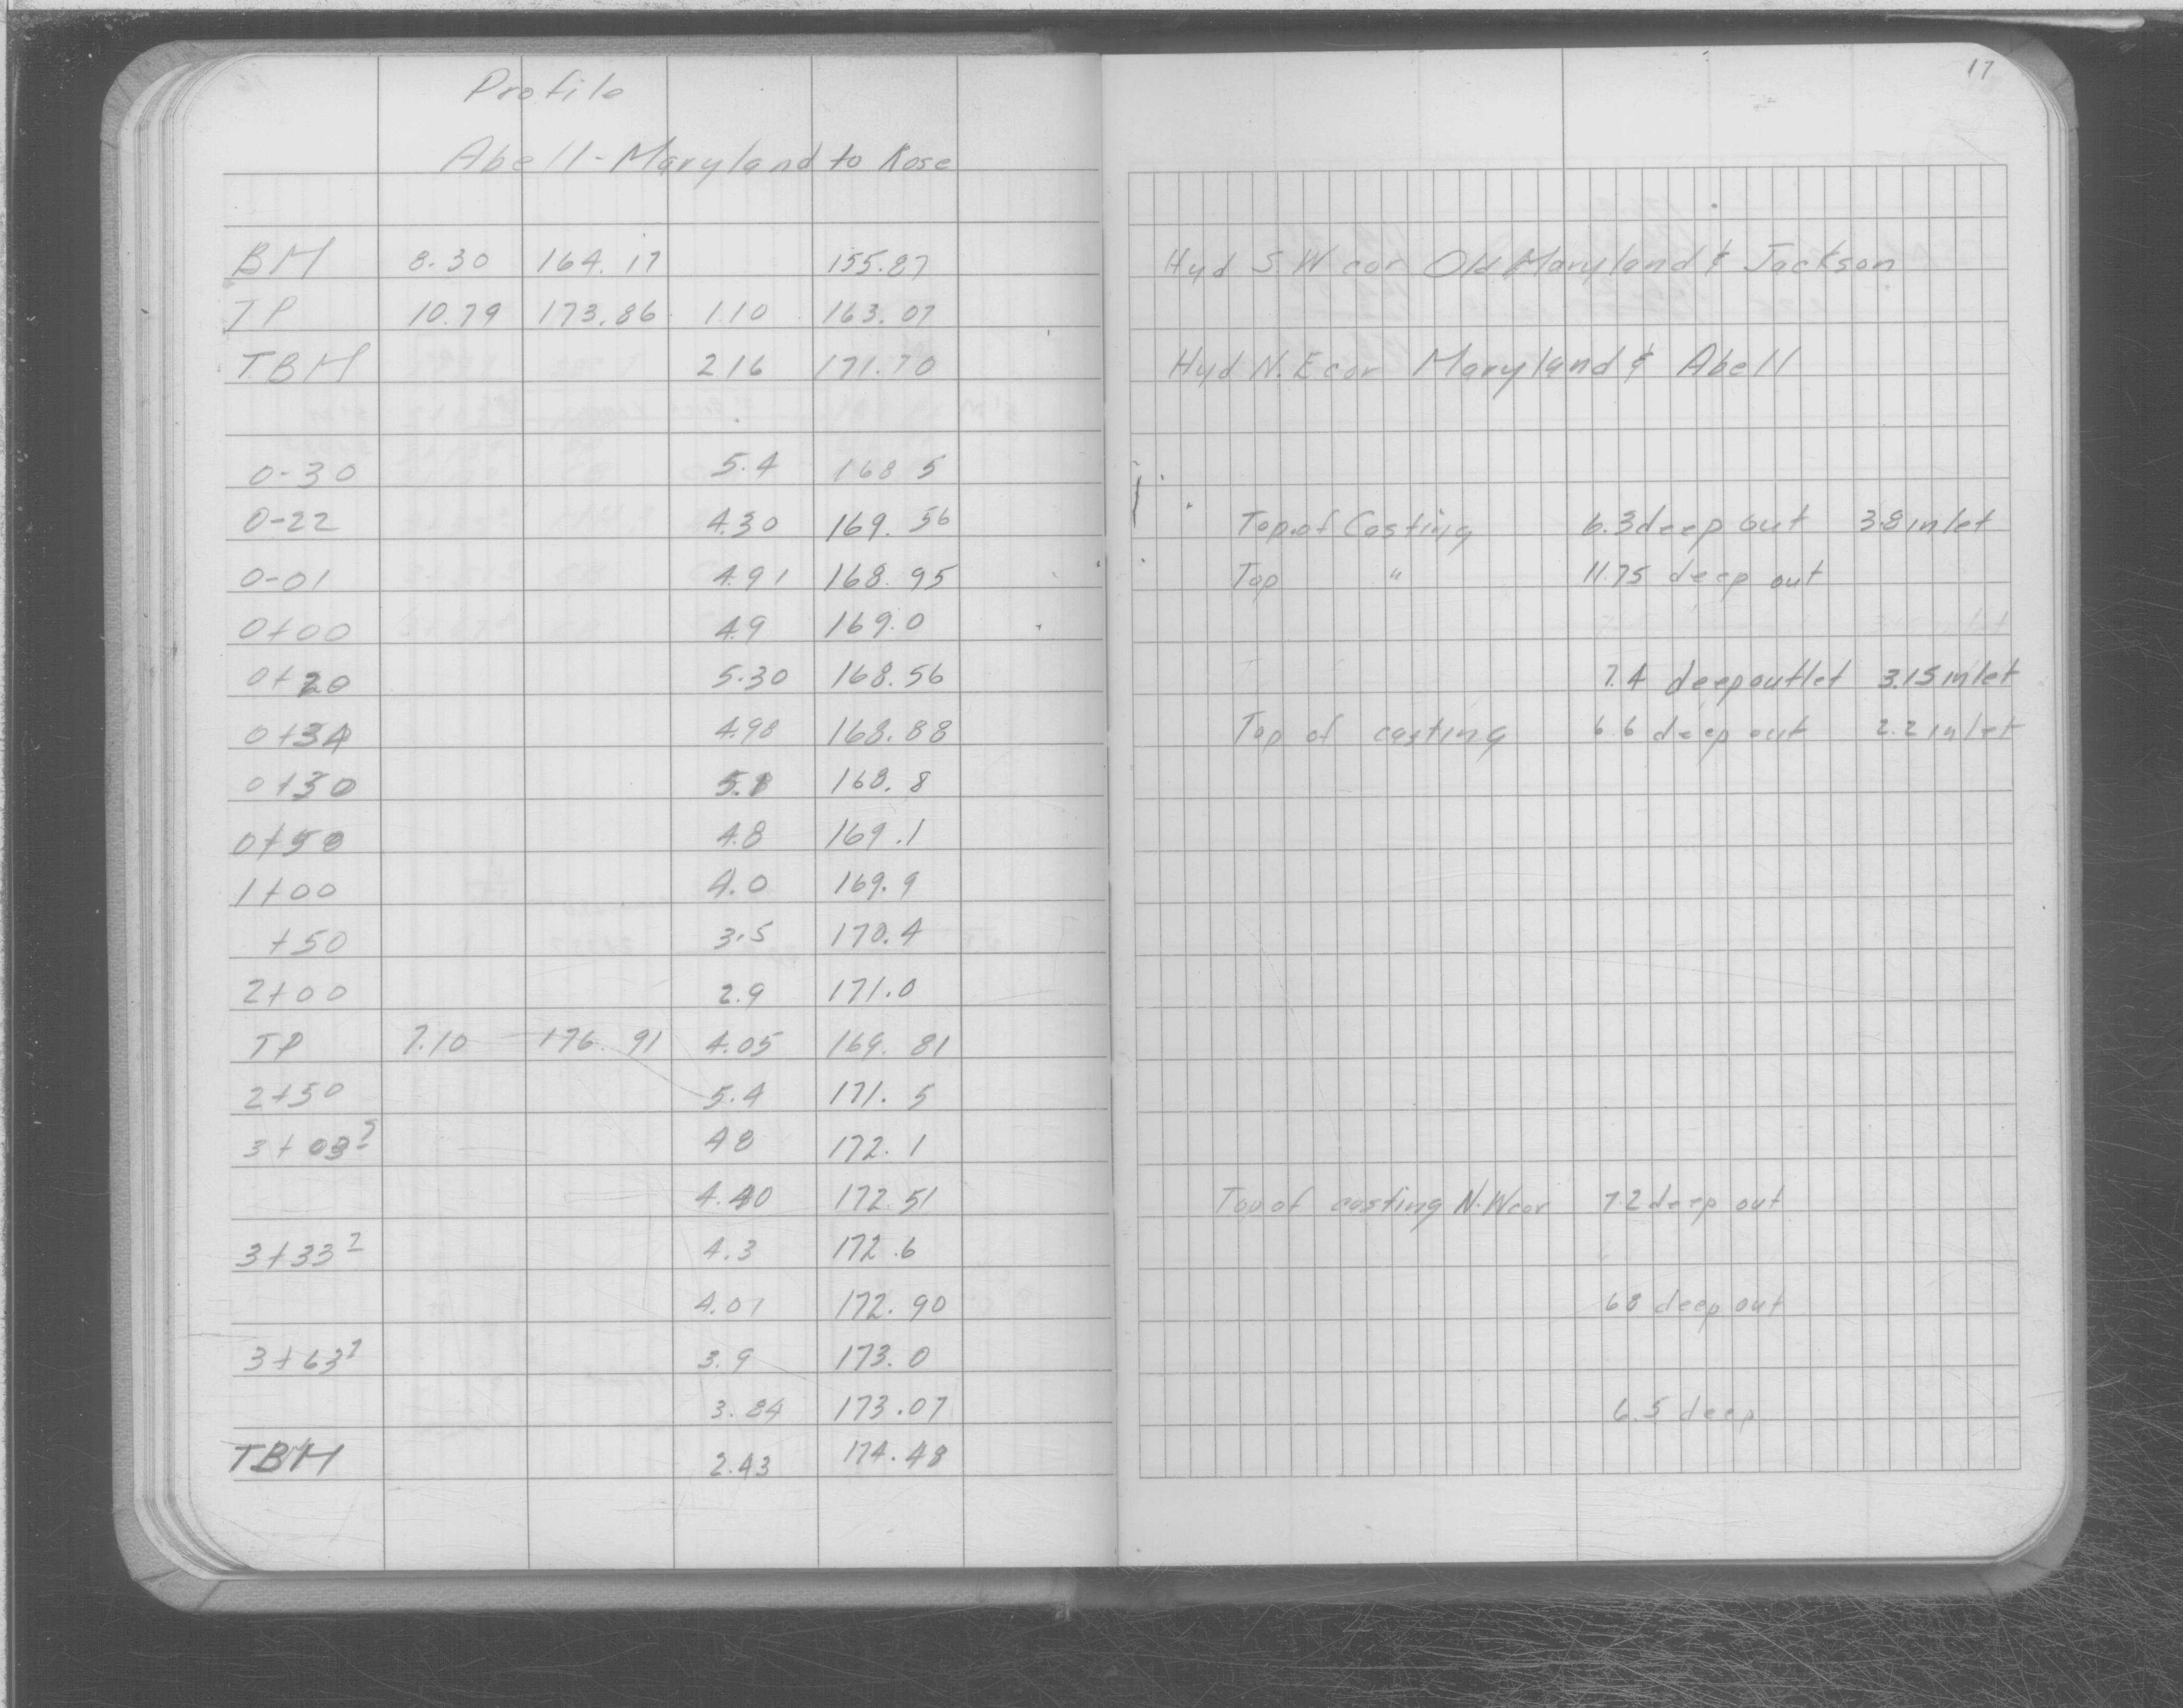 17
Profile
Abell-Maryland to Rose
BM 8.30 164.17 155.87 Hyd S.W cor Old Maryland & Jackson
TP 10.79 173.86 1.10 163.07
TBM 2.16 171.70 Hyd N.E cor Maryland & Abell
0-30 5.4 168.5
0-22 4.30 169.56 Top of Casting 6.3 deep out 3.8 inlet
0-01 4.91 168.95 Top " 11.75 deep out
0+00 4.9 169.0
0+20 5.30 168.56 7.4 deep outlet 3.15 inlet
0+34 4.98 168.88 Top of casting 6.6 deep out 2.2 inlet
0+30 5.1 168.8
0+50 4.8 169.1
1+00 4.0 169.9
+50 3.5 170.4
2+00 2.9 171.0
TP 7.10 176.91 4.05 169.81
2+50 5.4 171.5
3+03 4.8 172.1
4.40 172.51 Top of casting N.W cor 7.2 deep out
3+33 4.3 172.6
4.01 172.90 6.8 deep out
3+63 3.9 173.0
3.84 173.07 6.5 deep
TBM 2.43 174.48